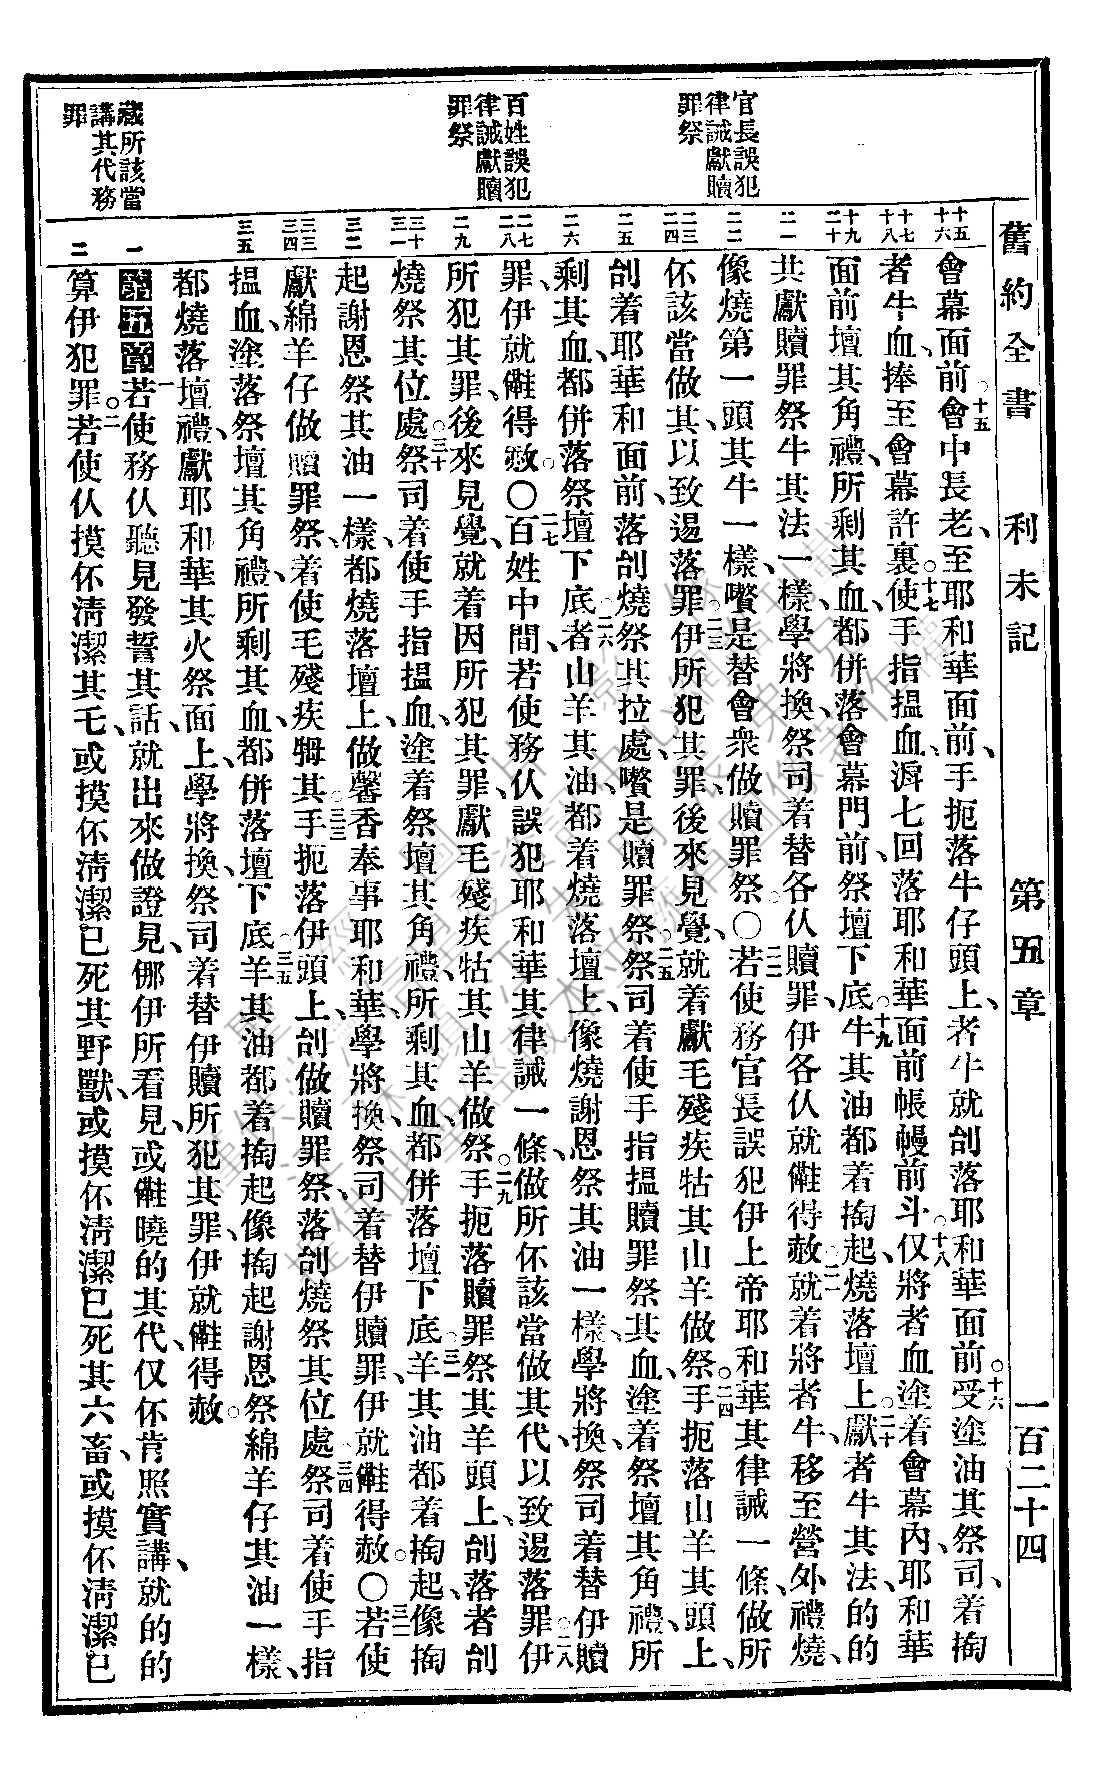 舊約全書　利未記　第五章　一百二十四
官長誤犯
律誡獻贖
罪祭
百姓誤犯
律誡獻贖
罪祭
藏所該當
講其代務
罪
十五
十六
會幕面前○十五會中長老、至耶和華面前、手扼落牛仔頭上、者牛就刣落耶和華面前○十六受塗油其祭司、着掏
十七
十八
者牛血、捧至會幕許裏○十七使手指搵血、濟七回落耶和華面前帳幔前斗○十八仅將者血塗着會幕內、耶和華
十九
二十
面前壇其角禮、所剩其血、都併落會幕門前、祭壇下底○十九牛其油都着掏起燒落壇上○二十獻者牛其法、的的
二一
共獻贖罪祭牛其法一樣、學將換、祭司着替各仈贖罪、伊各仈就𣍐得赦○二一就着將者牛、移至營外禮燒、
二二
像燒第一頭其牛一樣、嚽是替會衆做贖罪祭○二二若使務官長誤犯伊上帝耶和華其律誡一條、做所
二三
二四
伓該當做其、以致逿落罪○二三伊所犯其罪、後來見覺、就着獻毛殘疾牯其山羊做祭○二四手扼落山羊其頭上、
二五
刣着耶華和面前、落刣燒祭其拉處、嚽是贖罪祭○二五祭司着使手指搵贖罪祭其血、塗着祭壇其角禮、所
二六
剩其血、都併落祭壇下底○二六者山羊其油、都着燒落壇上、像燒謝恩祭其油一樣、學將換、祭司着替伊贖
二七
二八
罪、伊就𣍐得赦○二七百姓中間、若使務仈誤犯耶和華其律誡一條、做所伓該當做其代、以致逿落罪○二八伊
二九
所犯其罪、後來見覺、就着因所犯其罪、獻毛殘疾牯其山羊做祭○二九手扼落贖罪祭其羊頭上、刣落者刣
三十
三一
燒祭其位處○三十祭司着使手指搵血、塗着祭壇其角禮、所剩其血、都併落壇下底○三一羊其油都着掏起、像掏
三二
起謝恩祭其油一樣、都燒落壇上、做馨香奉事耶和華、學將換、祭司着替伊贖罪、伊就𣍐得赦○三二若使
三三
三四
獻綿羊仔做贖罪祭、着使毛殘疾𤙩其○三三手扼落伊頭上、刣做贖罪祭、落刣燒祭其位處○三四祭司着使手指
三五
搵血、塗落祭壇其角禮、所剩其血、都併落壇下底○三五羊其油都着掏起、像掏起謝恩祭綿羊仔其油一樣、
都燒落壇禮、獻耶和華其火祭面上、學將換、祭司着替伊贖所犯其罪、伊就𣍐得赦○
一
第五章　一若使務仈聽見發誓其話、就出來做證見、倻伊所看見、或𣍐曉的其代、仅伓肯照實講、就的的
二
算伊犯罪○二若使仈摸伓淸潔其乇、或摸伓淸潔已死其野獸、或摸伓淸潔已死其六畜、或摸伓淸潔已